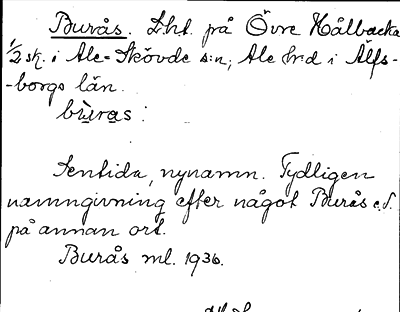 Burås. Lht. på Övre Hålbacka
1/2 sk. i Ale-Skövde s:n, Ale hrd i Älfs-
-borgs län.
bùras :
Sentida, nynamn. Tydligen
namngivning efter något Burås e.d.
på annan ort.
Burås ml. 1936.